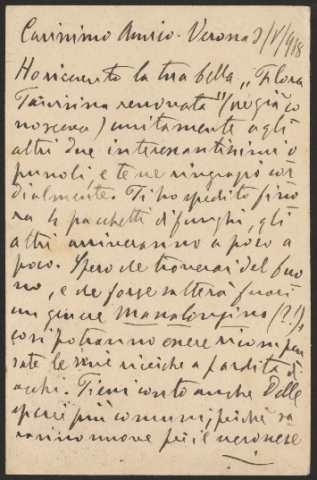 Carissimo Amico. Verona 3/V/918
Ho ricevuto la tua bella „Flora
Tauriniana renovata" (no già co
nosceva) unitamente agli
altri due interessantissimi o
puscoli e te ne ringrazio cor
dialmente. Ti ho spedito fino
ra 4 pacchetti di funghi, gli
altri arriveranno a poco a
poco. Spero che troverai del buo
no, e che forse salterà fuori
un genere Massalongina (?!),
così potranno essere ricompen
sate le mie ricerche a perdita di
occhi. Tieni conto anche delle
specie più comuni, poiché sa
ranno nuove per il veronese